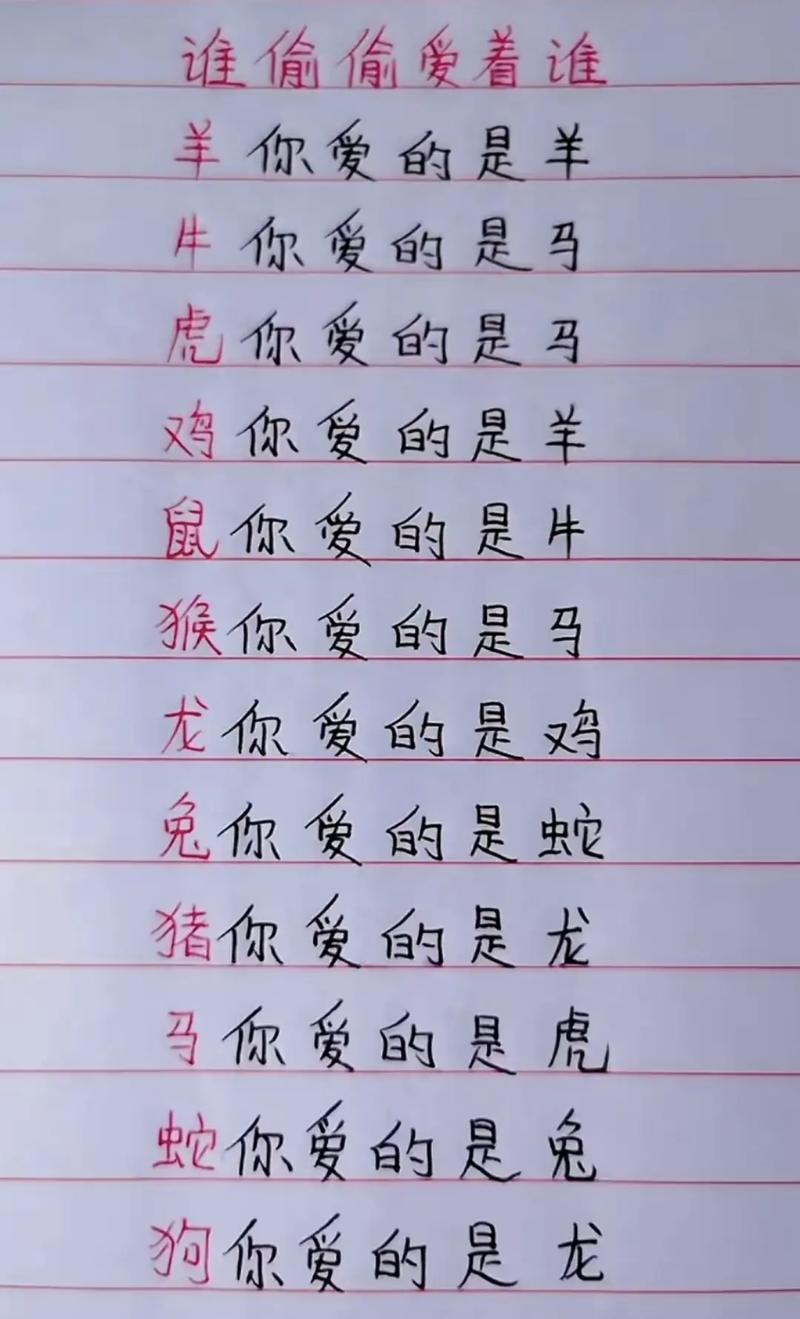 谁偷偷爱着谁
羊你爱的是羊
牛你爱的是马
虎你爱的是马
鸡你爱的是羊
鼠你爱的是牛
猴你爱的是马
龙你爱的是鸡
兔你爱的是蛇
猪你爱的是龙
马你爱的是虎
蛇你爱的是兔
狗你爱的是龙